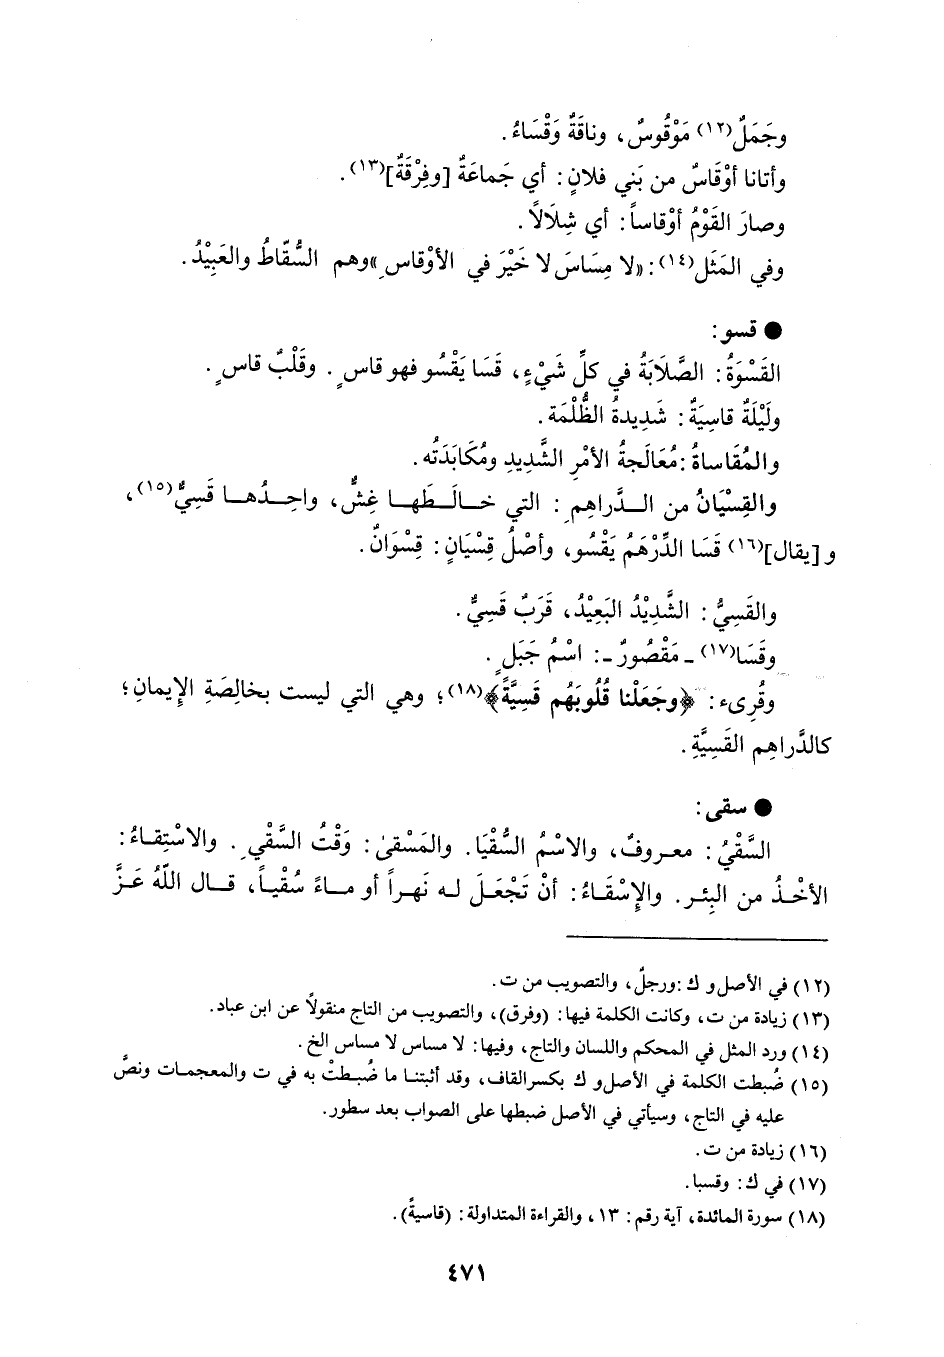 وجَمَلٌ(١٢) مَوْقُوسٌ، وناقَةٌ وَقْسَاءُ.
وأتانا أوْقَاسٌ من بَني فلانٍ: أي جَماعَةٌ [وفِرْقَةٌ](١٣).
وصارَ القَوْمُ أوْقاساً: أي شِلَالًا.
وفي المَثَل(١٤): «لا مِسَاسَ لا خَيْرَ في الأوْقاسِ» وهم السُّقّاطُ والعَبِيْدُ.
● قسو:
القَسْوَةُ: الصَّلَابَةُ في كلِّ شَيْءٍ، قَسَا يَقْسُو فهو قاسٍ. وقَلْبٌ قاسٍ.
ولَيْلَةٌ قاسِيَةٌ: شَدِيدةُ الظُّلْمَة.
والمُقَاساةُ: مُعَالَجةُ الأمْرِ الشَّدِيدِ ومُكَابَدَتُه.
والقِسْيَانُ من الدَّراهِمِ: التي خالَطَها غِشٌّ، واحِدُها قَسِيٌّ(١٥)،
و[يقال](١٦) قَسَا الدِّرْهَمُ يَقْسُو، وأصْلُ قِسْيَانٍ: قِسْوَانٌ.
والقَسِيُّ: الشَّدِيْدُ البَعِيْدُ، قَرَبٌ قَسِيٌّ.
وقَسَا(١٧) - مَقْصُورٌ -: اسْمُ جَبَلٍ.
وقُرِىء: ﴿وجَعَلْنا قُلُوبَهُم قَسِيَّةً﴾(١٨)؛ وهي التي ليست بخالِصَةِ الإِيمانِ؛
كالدَّراهِم القَسِيَّةِ.
● سقى:
السَّقْيُ: معروفٌ، والاسْمُ السُّقْيَا. والمَسْقىٰ: وَقْتُ السَّقْيِ. والاسْتِقاءُ:
الأخْذُ من البِئر. والإِسْقَاءُ: أنْ تَجْعَلَ له نَهراً أو ماءً سُقْياً، قال اللّهُ عَزَّ
(١٢) في الأصل و ك: ورجلٌ، والتصويب من ت.
(١٣) زيادة من ت، وكانت الكلمة فيها: (وفرق)، والتصويب من التاج منقولاً عن ابن عباد.
(١٤) ورد المثل في المحكم واللسان والتاج، وفيها: لا مساس لا مساس الخ.
(١٥) ضُبطت الكلمة في الأصل و ك بكسر القاف، وقد أثبتنا ما ضُبطتْ به في ت والمعجمات ونصَّ
عليه في التاج، وسيأتي في الأصل ضبطها على الصواب بعد سطور.
(١٦) زيادة من ت.
(١٧) في ك: وقسبا.
(١٨) سورة المائدة، آية رقم: ١٣، والقراءة المتداولة: (قاسيةً).
٤٧١